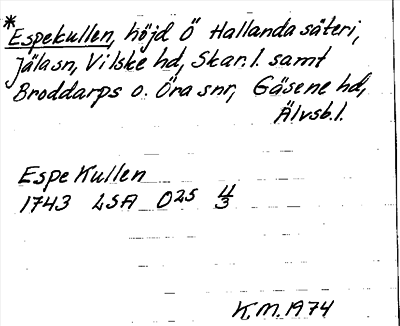 *Espekullen, höjd Ö Hallanda säteri,
Jäla sn, Vilske hd, Skar. l. samt
Broddarps o. Öra snr, Gäsene hd,
Älvsb. l.
Espe Kullen
1743 LSA O25 4/3
K.M. 1974